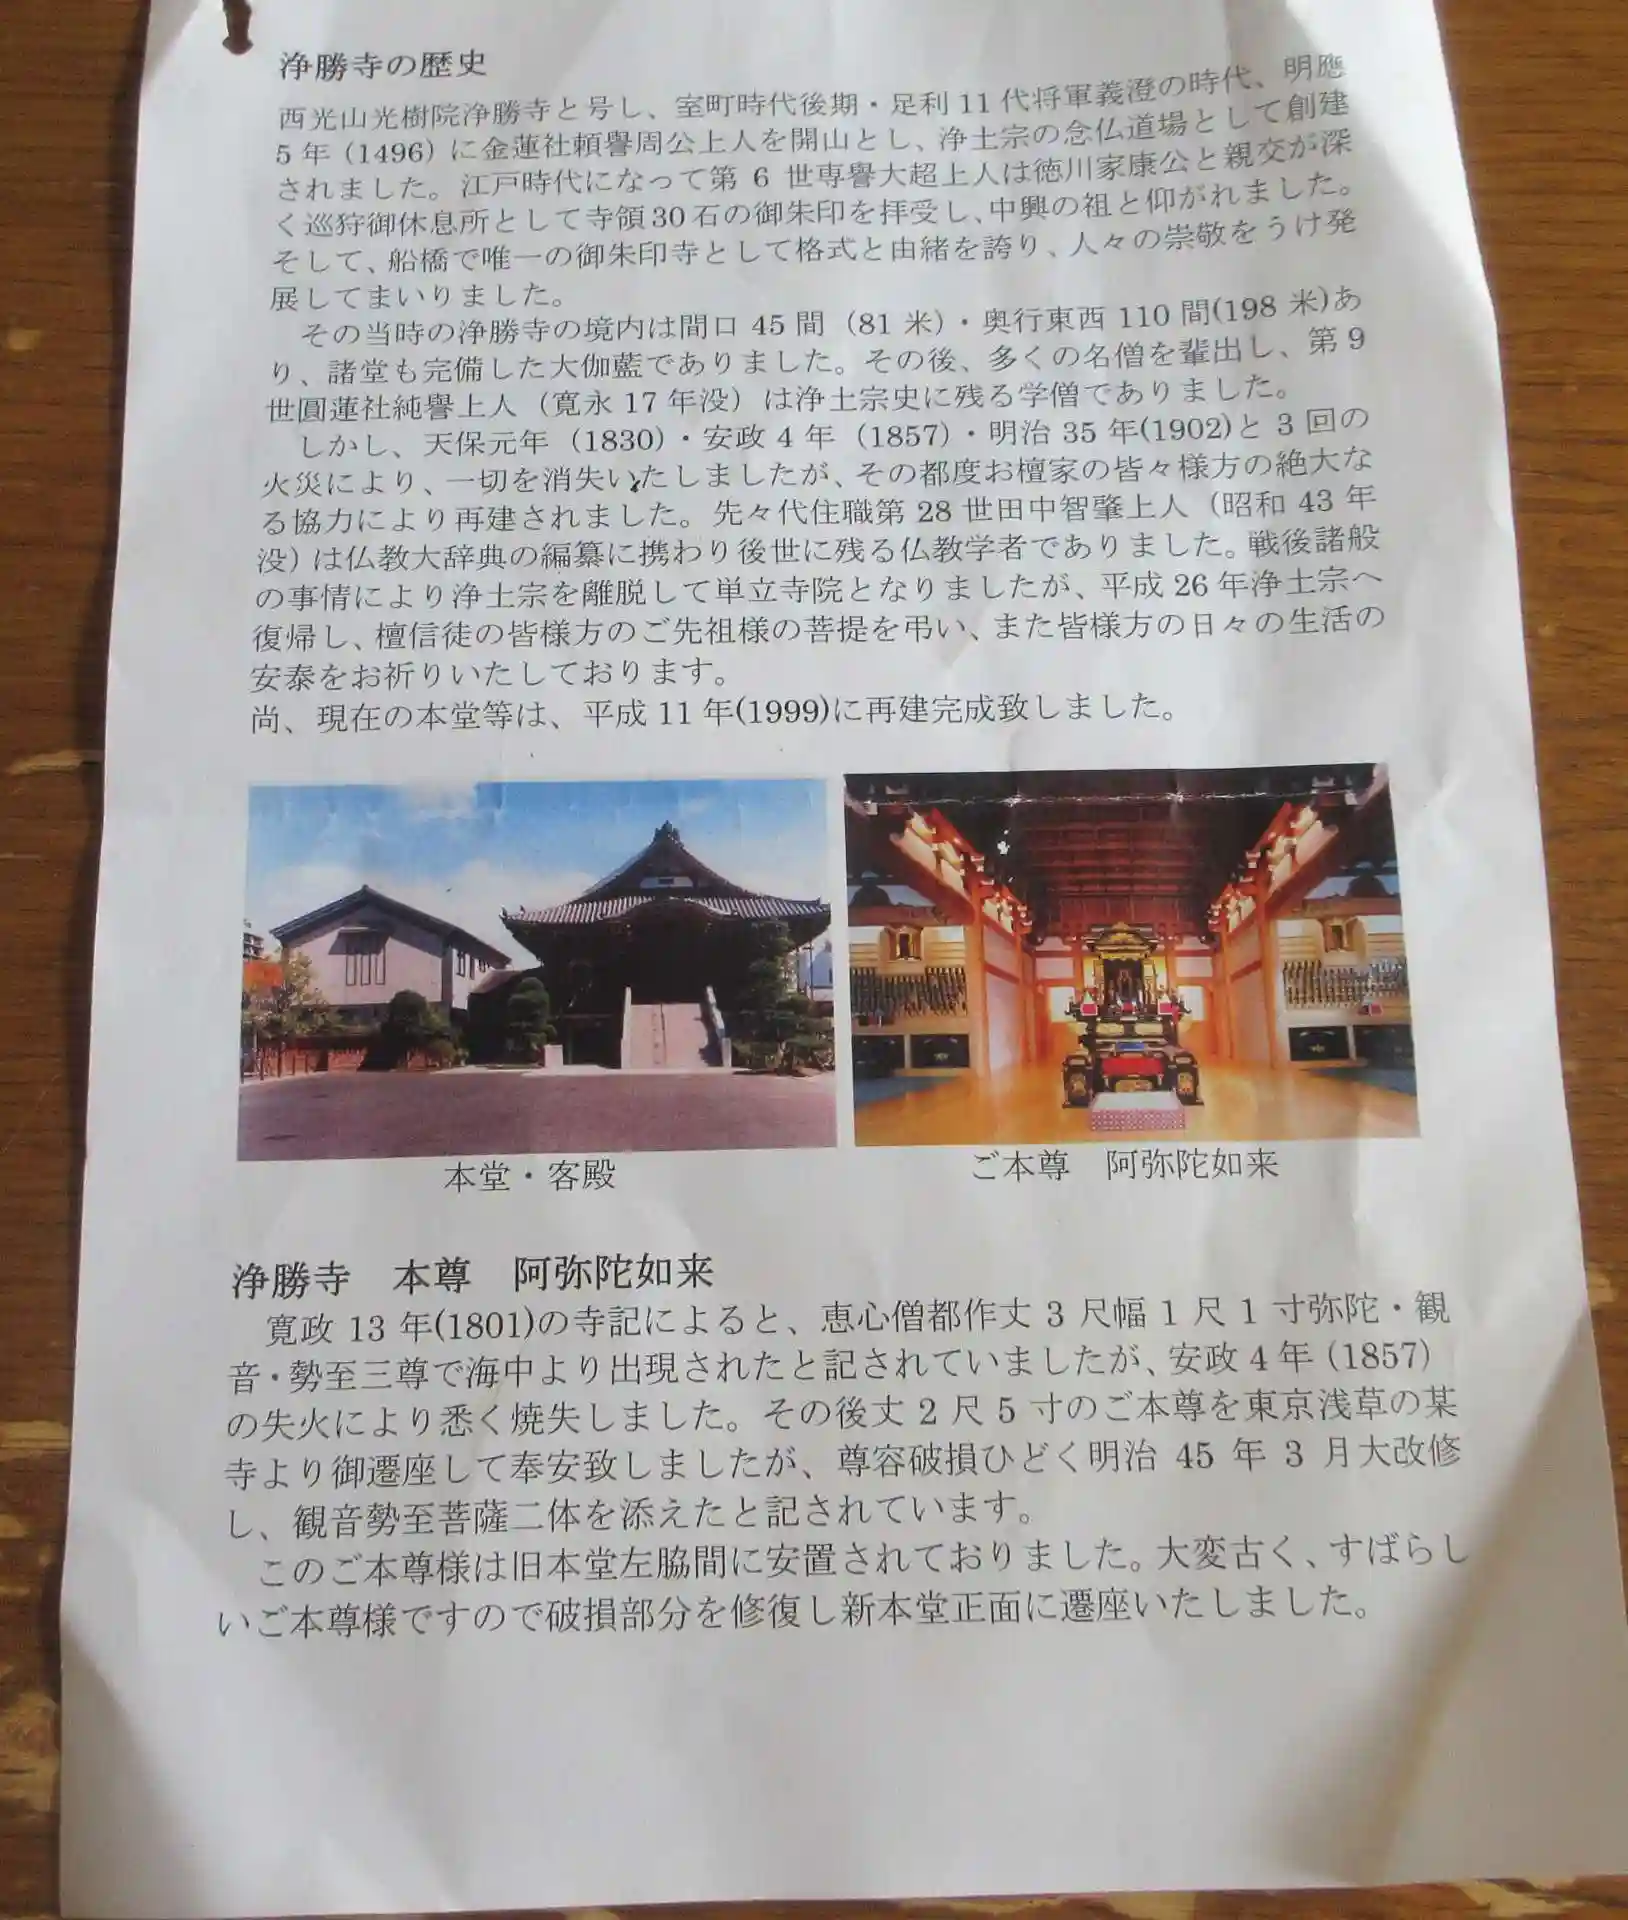 浄勝寺の歴史
西光山光樹院浄勝寺と号し、室町時代後期・足利11代将軍義澄の時代、明應
5年(1496)に金蓮社頼譽周公上人を開山とし、浄土宗の念仏道場として創建
されました。江戸時代になって第6世専譽大超上人は徳川家康公と親交が深
く巡狩御休息所として寺領30石の御朱印を拝受し、中興の祖と仰がれました。
そして、船橋で唯一の御朱印寺として格式と由緒を誇り、人々の崇敬をうけ発
展してまいりました。
その当時の浄勝寺の境内は間口45間(81米)・奥行東西110間(198米)あ
り、諸堂も完備した大伽藍でありました。その後、多くの名僧を輩出し、第9
世圓蓮社純譽上人(寛永17年没)は浄土宗史に残る学僧でありました。
しかし、天保元年(1830)・安政4年(1857)・明治35年(1902)と3回の
火災により、一切を消失いたしましたが、その都度お檀家の皆々様方の絶大な
る協力により再建されました。先々代住職第28世田中智肇上人(昭和43年
没)は仏教大辞典の編纂に携わり後世に残る仏教学者でありました。戦後諸般
の事情により浄土宗を離脱して単立寺院となりましたが、平成26年浄土宗へ
復帰し、檀信徒の皆様方のご先祖様の菩提を弔い、また皆様方の日々の生活の
安泰をお祈りいたしております。
尚、現在の本堂等は、平成11年(1999)に再建完成致しました。
本堂・客殿
ご本尊 阿弥陀如来
浄勝寺 本尊 阿弥陀如来
寛政13年(1801)の寺記によると、恵心僧都作丈3尺幅1尺1寸弥陀・観
音・勢至三尊で海中より出現されたと記されていましたが、安政4年(1857)
の失火により悉く焼失しました。その後丈2尺5寸のご本尊を東京浅草の某
寺より御遷座して奉安致しましたが、尊容破損ひどく明治45年3月大改修
し、観音勢至菩薩二体を添えたと記されています。
このご本尊様は旧本堂左脇間に安置されておりました。大変古く、すばらし
いご本尊様ですので破損部分を修復し新本堂正面に遷座いたしました。